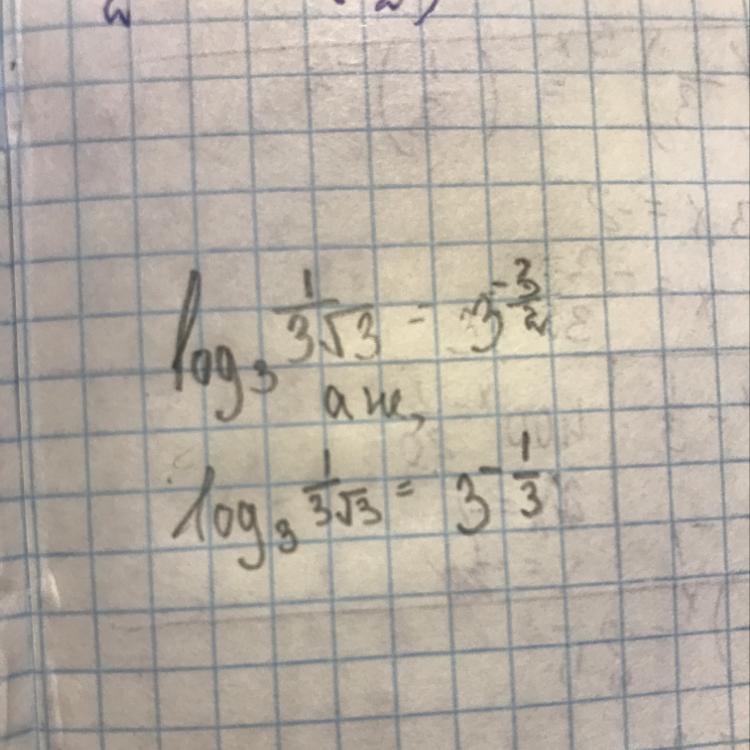 log₃ 1/3√3 = 3^(-3/2)
а не,
log₃ 1/3√3 = 3^(-1/3)